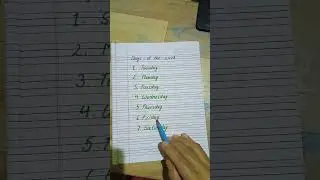 Days of the week
1. Sunday
2. Monday
3. Tuesday
4. Wednesday
5. Thursday
6. Friday
7. Saturday